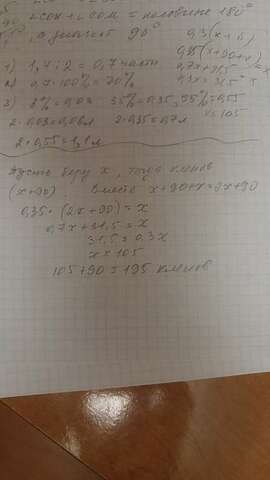 ∠COK и ∠COM = половине 180°
, а значит 90°
0,3(x+
0,35(x+90+x)=x
1) 1,4:2=0,7 части
0,7x+31,5
2) 0,7·100%=70%
0,3x=31,5
3) 3%=0,03 35%=0,35, 55%=0,55
x=105
2·0,03=0,06л 2·0,35=0,7л
2·0,55=1,1л
Пусть беру x, тогда кленов
(x+90) Вместе x+90+x=2x+90
0,35·(2x+90)=x
0,7x+31,5=x
31,5=0,3x
x=105
105+90=195 кленов